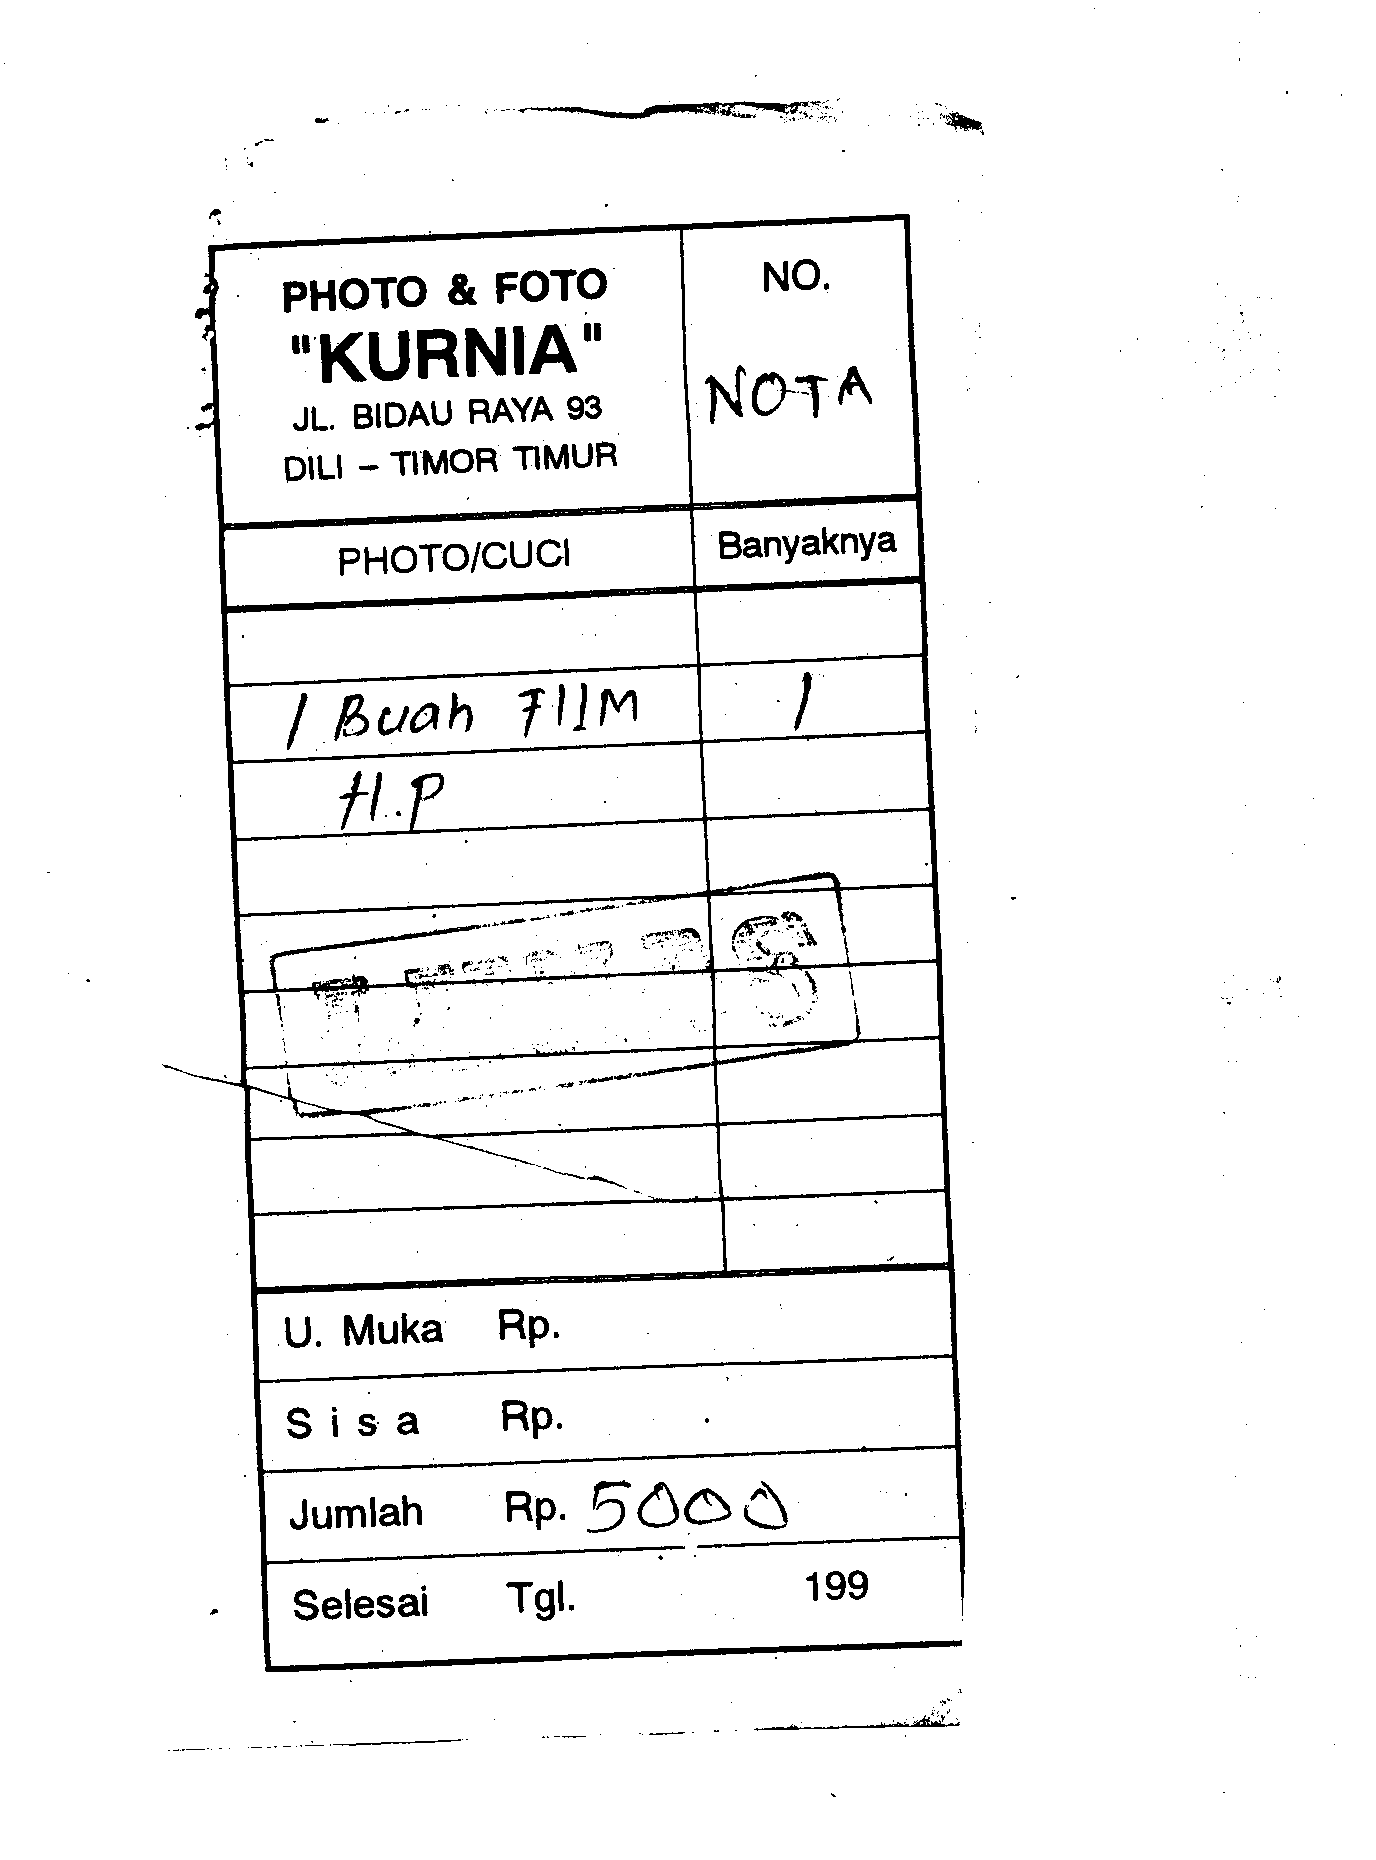 PHOTO & FOTO
"KURNIA"
JL. BIDAU RAYA 93
DILI – TIMOR TIMUR
NO.
NOTA
PHOTO/CUCI Banyaknya
1 Buah FIIM 1
H.P
U. Muka Rp.
Sisa Rp.
Jumlah Rp. 5000
Selesai Tgl. 199